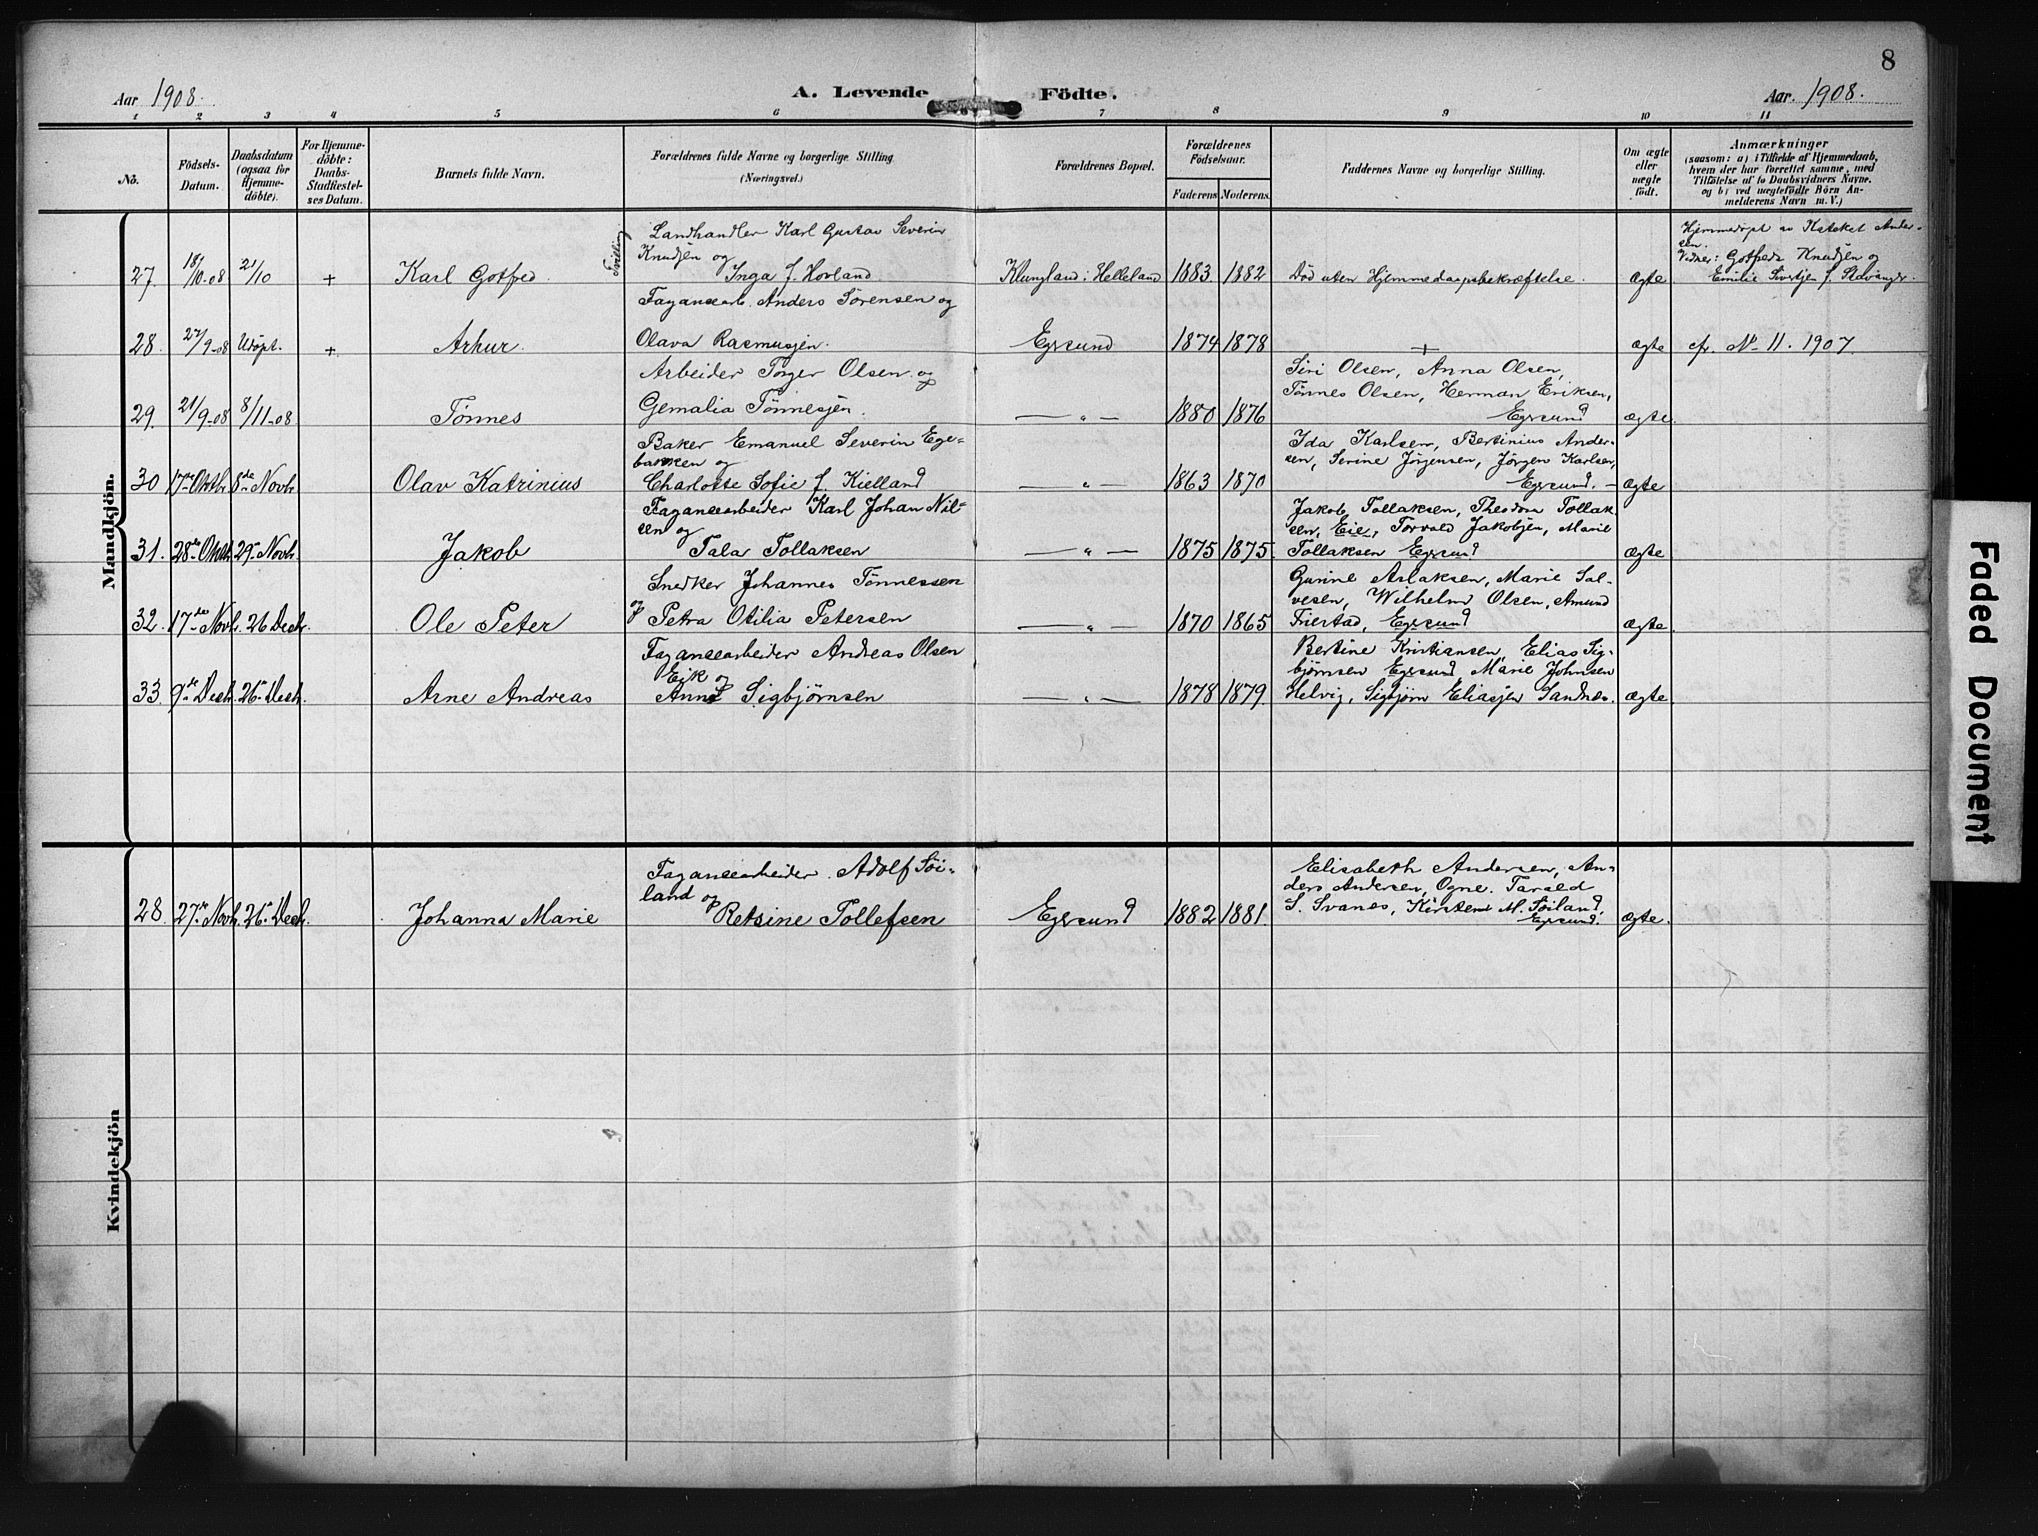 8
Aar 1908.
A. Levende Födte.
Aar. 1908.
1 2 3 4 5 6 7 8 9 10 11
No.
Födsels-
Datum.
Daabsdatum
(ogsaa for
Hjemme-
döbte).
For Hjemme-
döbte:
Daabs-
Stadfæstel-
ses Datum.
Barnets fulde Navn.
Forældrenes fulde Navne og borgerlige Stilling
(Næringsvei.)
Forældrenes Bopæl.
Forældrenes
Födselsaar.
Faderens Moderens
Faddernes Navne og borgerlige Stilling.
Om ægte
eller
uægte
födt.
Anmærkninger
(saasom: a) i Tilfælde af Hjemmedaab,
hvem der har forrettet samme, med
Tilföielse af to Daabsvidners Navne.
og b) ved uægtefödte Börn An-
melderens Navn m. V.)
Mandkjön.
27. 18/10-08 21/10 + Karl Gotfred
Tvilling
Landhandler Karl Gustav Severin
Knudsen og
Inga f. Hovland
Klungland i Helleland 1883. 1882 Död uten Hjemmedaapsbekræftelse. Ægte
Hjemmedöpt av Kateket Ander-
sen.
Vidner: Gotfreds Knudsen og
Emilie Sivertsen f. Stavanger.
28. 27/9-08 Udöpt. + Arhur.
Faganсearb. Anders Sörensen og
Olava Rasmussen.
Egersund 1874 1878 + ægte cfr. No 11. 1907.
29. 21/9-08 8/11-08 Tønnes
Arbeider Torger Olsen og
Gemalia Tønnessen.
— " — 1880 1876
Siri Olsen, Anna Olsen,
Tønnes Olsen, Herman Eriksen,
Egersund ægte.
30 17de Oktbr 8de Novbr Olav Katrinius
Baker Emanuel Severin Ege-
bakken og
Charlotte Sofie f. Kielland
— " — 1863 1870
Ida Karlsen, Bertinius Ander-
sen, Serine Jörgensen, Jörgen Karlsen,
Egersund. — Ægte
31. 28de Oktbr 29de Novbr. Jakob
Fagancearbeider Karl Johan Nil-
sen og
Tala Tollaksen
— " — 1875 1875.
Jakob Tollaksen, Theodora Tollak-
sen, Eie, Torvald Jakobsen, Marie
Tollaksen Egersund Ægte
32. 17de Novbr. 26 Decbr. Ole Peter
Snedker Johannes Tønnessen
og Petra Otilia Petersen
— " — 1870 1865
Gurine Aslaksen, Marie Sal-
vesen, Wilhelm Olsen, Amund
Friestad, Egersund Ægte.
33. 9de Decbr. 26de Decbr. Arne Andreas
Fagancearbeider Andreas Olsen
Eik og
Anna Sigbjørnsen
— " — 1878 1879.
Bertine Kristiansen, Elias Sig-
bjørnsen Egersund, Marie Johnsen
Helvig, Sigbjørn Eliassen Sandnes. Ægte.
Kvindekjön
28. 27de Novbr. 26de Decbr. Johanna Marie
Fagancearbeider Adolf Söi-
land og
Retsine Tollefsen
Egersund 1882 1881.
Elisabeth Andersen, An-
ders Andersen, Ogne. Tarald
S. Svanes, Kirsten M. Søiland,
Egersund. Ægte.
Faded Document